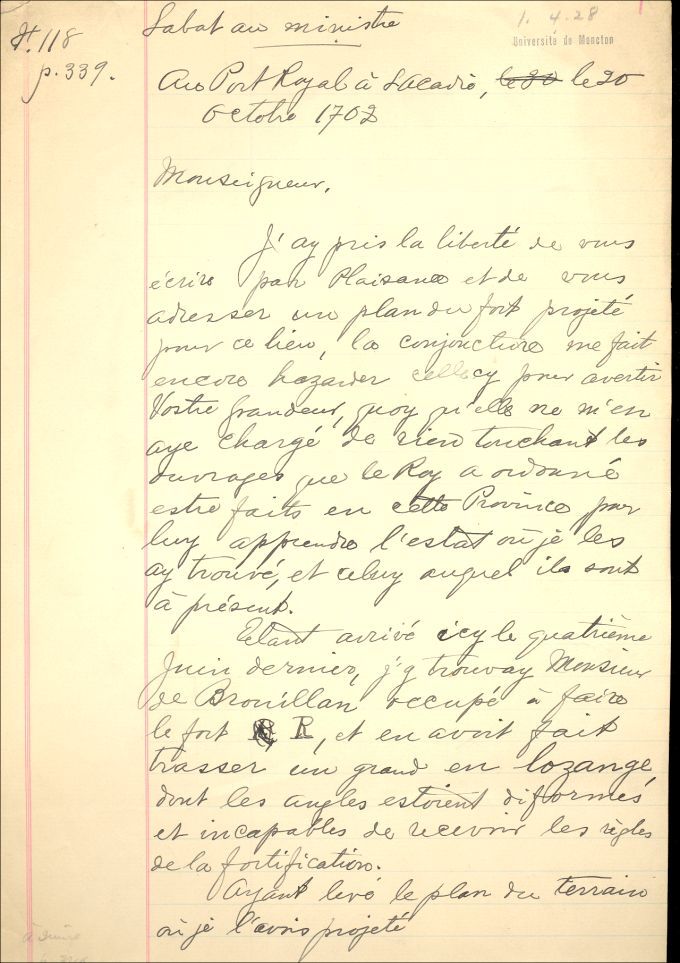 1. 4. 28
Université de Moncton
118
p. 339.
Labat au ministre
Au Port Royal à Lacadie, le 20 le 20
octobre 1702
Monseigneur,
J'ay pris la liberté de vous
écrire par Plaisance et de vous
adresser un plan du fort projeté
pour ce lieu, la conjoncture me fait
encore hazarder cellecy pour avertir
Vostre grandeur, quoy qu'elle ne m'en
aye chargé de rien touchant les
ouvrages que le Roy a ordonné
estre faits en cette Province par
luy apprendre l'estat où je les
ay trouvé, et celuy auquel ils sont
à présent.
Etant arrivé icy le quatrième
Juin dernier, j'y trouvay Monsieur
de Brouillan occupé à faire
le fort R, et en avoit fait
trasser un grand en lozange,
dont les angles estoient diformés
et incapables de recevoir les règles
de la fortification.
Ayant levé le plan du terrain
où je l'avois projeté